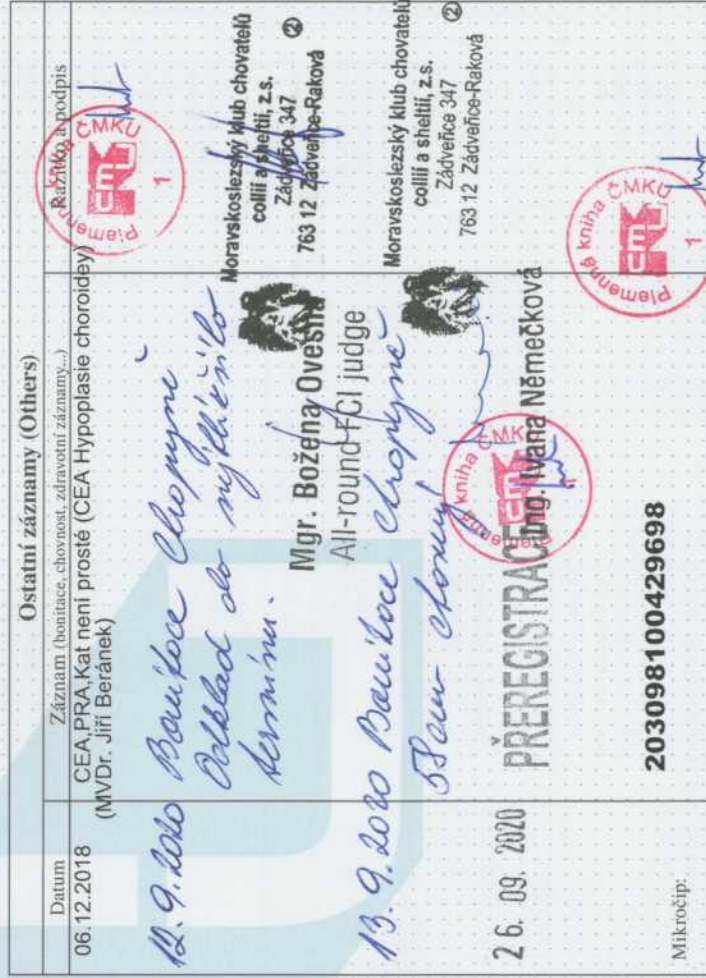 Ostatní záznamy (Others)
Datum
Záznam (bonitace, chovnost, zdravotní záznamy...)
Razítko a podpis
06.12.2018
CEA,PRA,Kat není prosté (CEA Hypoplasie choroidey)
(MVDr. Jiří Beránek)
Plemenná kniha ČMKU
cmku
1
12.9.2020 Bonitace Chropyně
Odklad do nejbližšího
termínu.
Mgr. Božena Ovesná
All-round FCI judge
Moravskoslezský klub chovatelů
collií a sheltií, z.s.
Zádveřice 347
763 12 Zádveřice-Raková
2
13.9.2020 Bonitace Chropyně
chovný
Ing. Ivana Němečková
Moravskoslezský klub chovatelů
collií a sheltií, z.s.
Zádveřice 347
763 12 Zádveřice-Raková
2
26. 09. 2020
PŘEREGISTRACE
Plemenná kniha ČMKU
Mikročip:
203098100429698
Plemenná kniha ČMKU
cmku
1